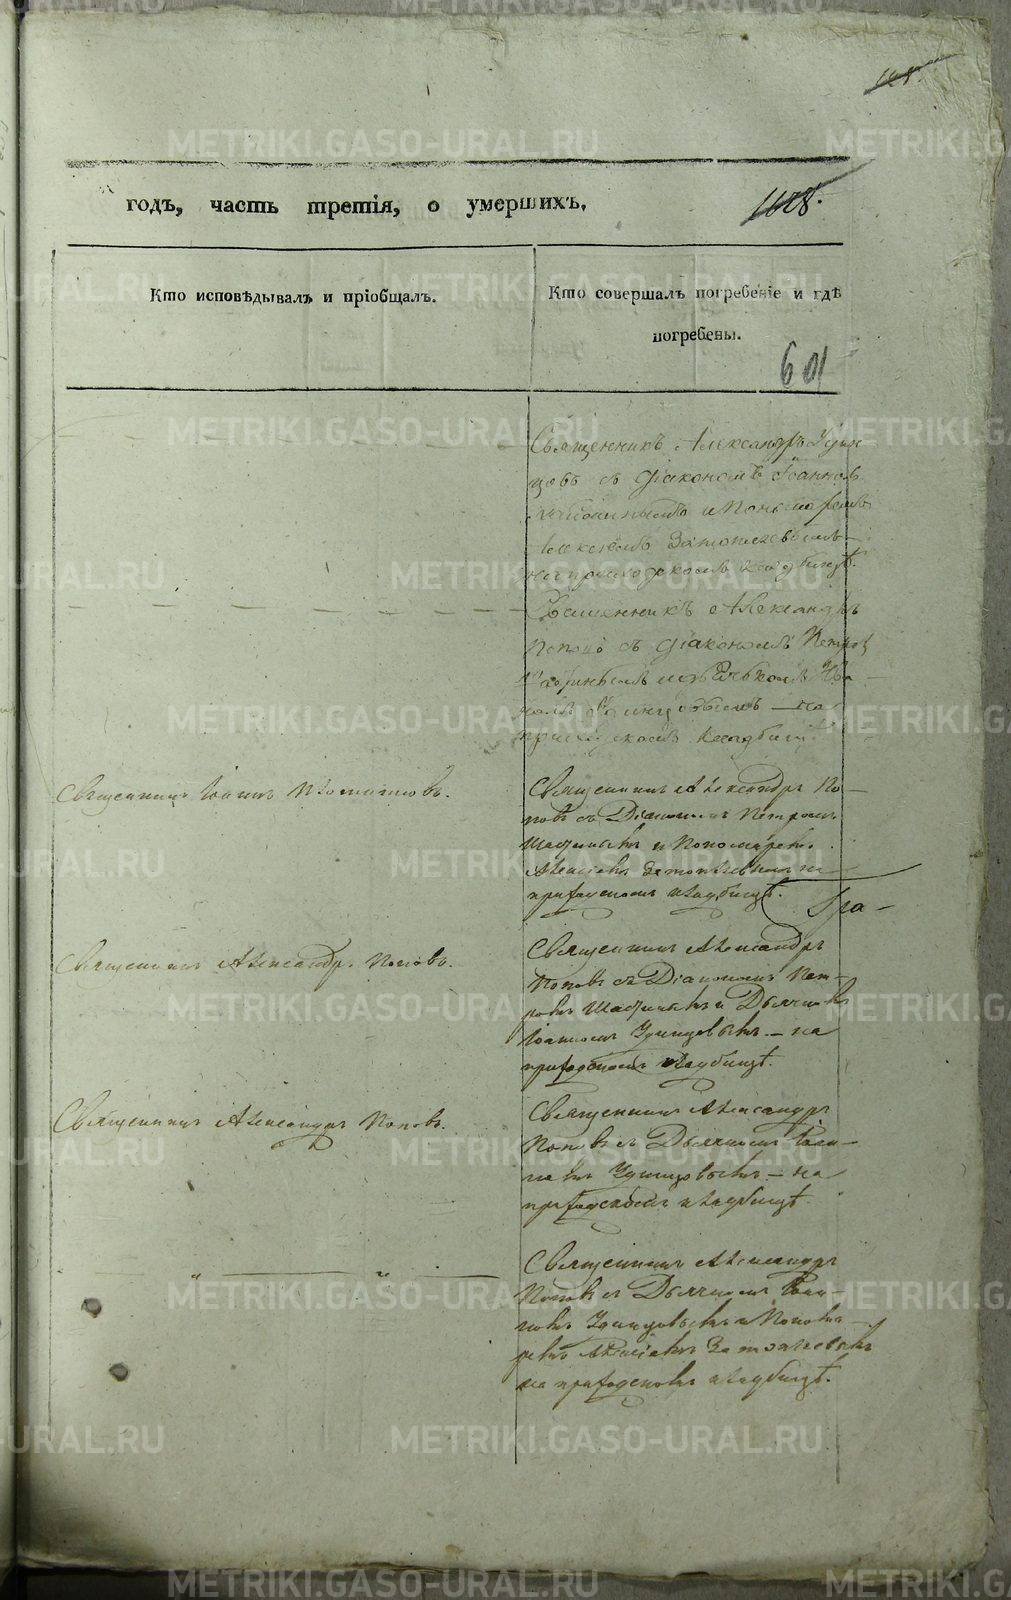 годъ, часть третія, о умершихъ.
1628.
Кто исповѣдывалъ и пріобщалъ.
Кто совершалъ погребеніе и гдѣ
погребены.
601
Священникъ Александръ Удин
цовъ съ Діакономъ Іоанномъ
и Пономаремъ
Алексѣемъ Затопляевымъ
на приходскомъ кладбищѣ.
Священникъ Александръ
Поповъ съ Діакономъ Петромъ
на
приходскомъ кладбищѣ
Священникъ Іоаннъ
Священникъ Александръ По-
повъ съ Діакономъ Петромъ
и Пономаремъ
Алексѣемъ Затопляевымъ на
приходскомъ кладбищѣ.
Гра-
Священникъ Александръ Поповъ.
Священникъ Александръ
Поповъ съ Діакономъ Пет-
ромъ и Дьячкомъ
Іоанномъ Удинцовымъ - на
приходскомъ кладбищѣ.
Священникъ Александръ Поповъ.
Священникъ Александръ
Поповъ съ Дьячкомъ Іоан-
номъ Удинцовымъ - на
приходскомъ кладбищѣ
Священникъ Александръ
Поповъ съ Дьячкомъ Іоан-
номъ Удинцовымъ и Понома-
ремъ Алексѣемъ Затопляевымъ
на приходскомъ кладбищѣ.
METRIKI.GASO-URAL.RU